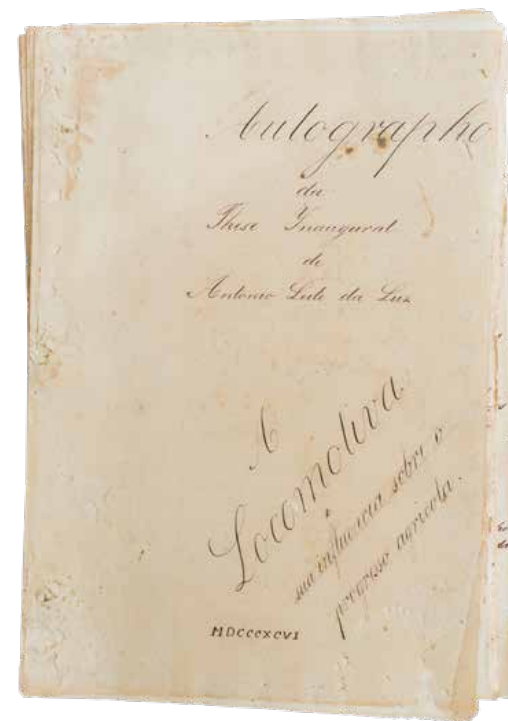 Autographo
da
These Inaugural
de
Antonio Leite da Luz
A
Locomotiva
e
sua influencia sobre o
progresso agricola.
MDCCCXCVI